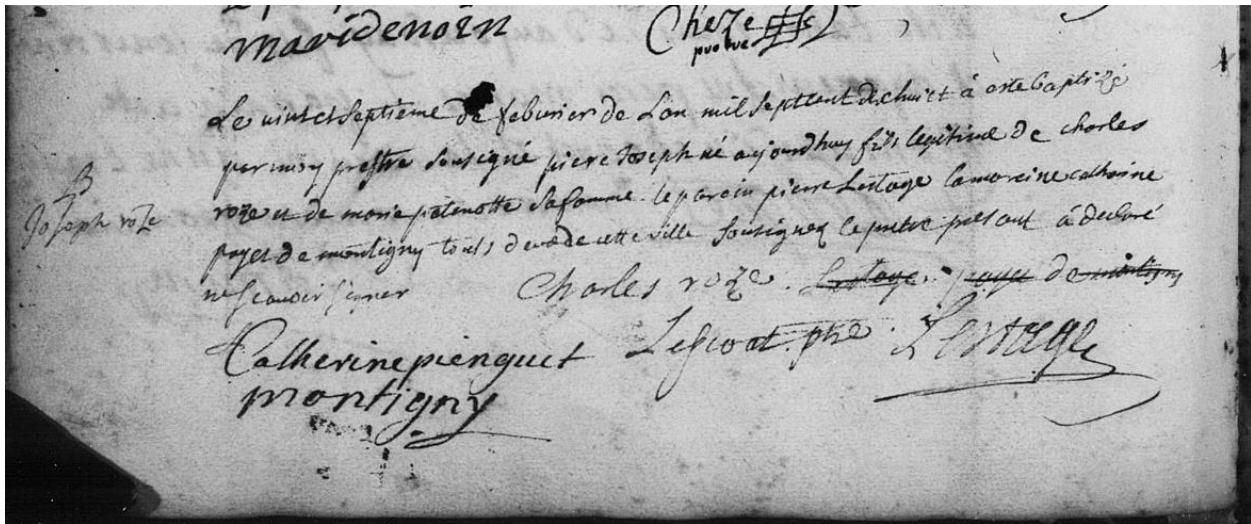 maridenoin
Cheze
pretre
B
Joseph roze
Le vint et septieme de feburier de Lan mil sept cent dichuict à esté Baptizé
par moy prestre Sousigné piere Joseph né aujourdhuy fils legitime de charles
roze et de marie patenotte Sa famme. le parain pierre Lestage la mareine catherine
payet de montigny touts de cette ville Sousignez le père present à declaré
ne Scavoir signer Charles roze. Lestage. payet de montigny
Catherine pienguet Lescoat. ptre. Lestage
montigny